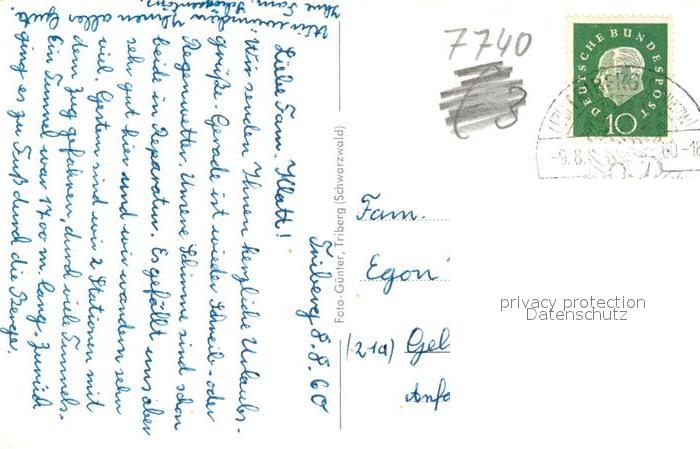 Triberg 8.8.60
Liebe Fam. Klatt!
Wir senden Ihnen herzliche Urlaubs-
grüße. Gerade ist wieder Schreib- oder
Regenwetter. Unsere Schirme sind schon
beide in Reparatur. Es gefällt uns aber
sehr gut hier und wir wandern sehr
viel. Gestern sind wir 2 Stationen mit
dem Zug gefahren, durch viele Tunnels.
Ein Tunnel war 1700 m lang. Zurück
ging es zu Fuß durch die Berge.
Wir wünschen Ihnen alles Gute
Ihre Fam.
Foto-Günter, Triberg (Schwarzwald)
7740
DEUTSCHE BUNDESPOST
10
-9.8. 60-18
Fam.
Egon
(21a) Gel
Anfa
privacy protection
Datenschutz